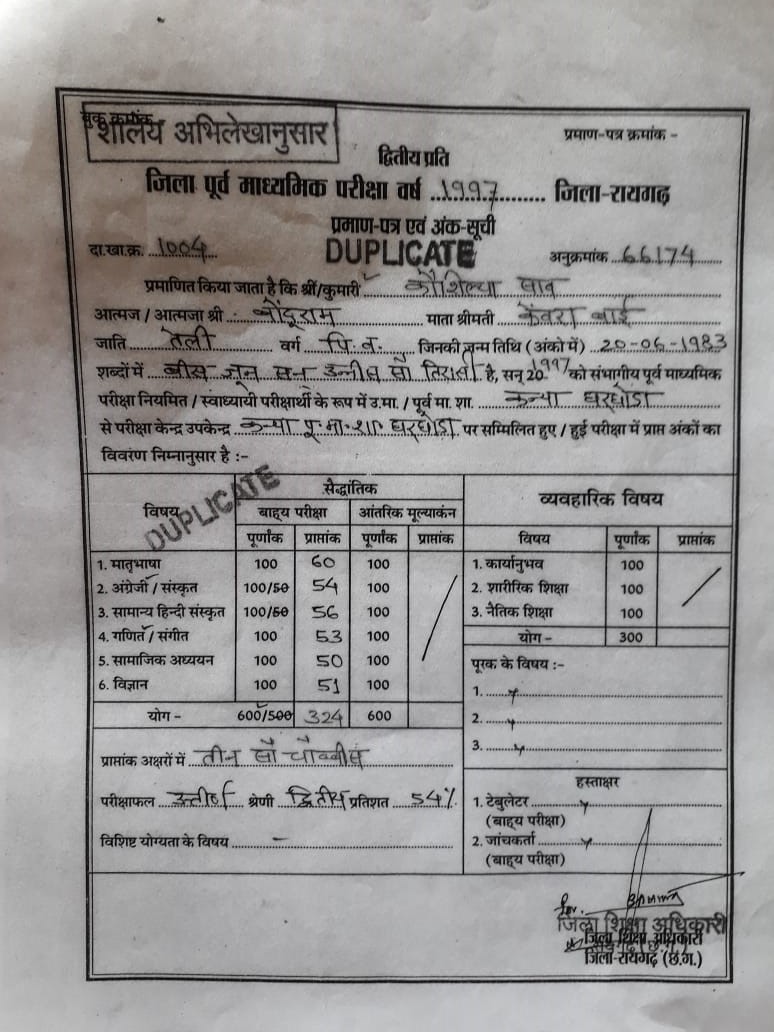 बुक क्रमांक
शालेय अभिलेखानुसार
प्रमाण-पत्र क्रमांक -
द्वितीय प्रति
जिला पूर्व माध्यमिक परीक्षा वर्ष ..1997........... जिला-रायगढ़
प्रमाण-पत्र एवं अंक-सूची
दा.खा.क्र. 1004 DUPLICATE अनुक्रमांक 66174
प्रमाणित किया जाता है कि श्री/कुमारी कौशिल्या साव
आत्मज / आत्मजा श्री बोंदूराम माता श्रीमती केंवरा बाई
जाति तेली वर्ग पि.व. जिनकी जन्म तिथि (अंको में) 20-06-1983
शब्दों में बीस जून सन उन्नीस सौ तिरासी है, सन् 20 1997 को संभागीय पूर्व माध्यमिक
परीक्षा नियमित / स्वाध्यायी परीक्षार्थी के रूप में उ.मा. / पूर्व मा. शा. कन्या घरघोड़ा
से परीक्षा केन्द्र उपकेन्द्र कन्या पू.मा.शा. घरघोड़ा पर सम्मिलित हुए / हुई परीक्षा में प्राप्त अंकों का
विवरण निम्नानुसार है :-
DUPLICATE
विषय सैद्धांतिक
बाह्य परीक्षा आंतरिक मूल्याकंन
पूर्णांक प्राप्तांक पूर्णांक प्राप्तांक
1. मातृभाषा 100 60 100
2. अंग्रेजी / संस्कृत 100/50 54 100
3. सामान्य हिन्दी संस्कृत 100/50 56 100
4. गणित / संगीत 100 53 100
5. सामाजिक अध्ययन 100 50 100
6. विज्ञान 100 51 100
योग - 600/500 324 600
प्राप्तांक अक्षरों में तीन सौ चौब्बीस
परीक्षाफल उत्तीर्ण श्रेणी द्वितीय प्रतिशत 54%
विशिष्ट योग्यता के विषय -
व्यवहारिक विषय
विषय पूर्णांक प्राप्तांक
1. कार्यानुभव 100
2. शारीरिक शिक्षा 100
3. नैतिक शिक्षा 100
योग - 300
पूरक के विषय :-
1.
2.
3.
हस्ताक्षर
1. टेबुलेटर
(बाह्य परीक्षा)
2. जांचकर्ता
(बाह्य परीक्षा)
for.
जिला शिक्षा अधिकारी
जिला शिक्षा अधिकारी
रायगढ़ (छ.ग.)
जिला-रायगढ़ (छ.ग.)